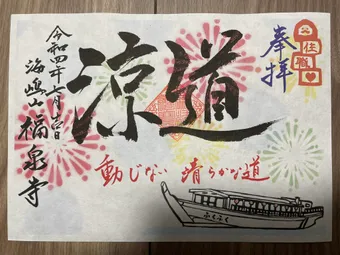 奉拝
住職
涼道
動じない 清らかな道
令和四年七月吉日
海嶋山 福泉寺
ふくふく